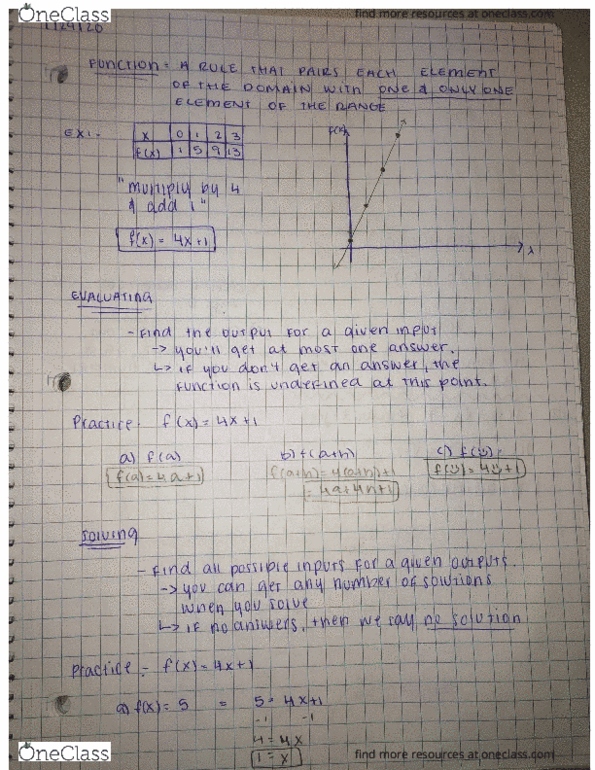 OneClass
find more resources at oneclass.com
1/24/20
FUNCTION = A RULE THAT PAIRS EACH ELEMENT
OF THE DOMAIN WITH ONE & ONLY ONE
ELEMENT OF THE RANGE
EX1.
x 0 1 2 3
f(x) 1 5 9 13
f(x)
x
"multiply by 4
& add 1"
f(x) = 4x+1
EVALUATING
- Find the output for a given input
-> you'll get at most one answer.
↳ if you don't get an answer, the
function is undefined at this point.
Practice - f(x) = 4x+1
a) f(a) b) f(a+h) c) f(☺) =
f(a)=4a+1 f(a+h)=4(a+h)+1 f(☺)=4☺+1
= 4a+4h+1
Solving
- Find all possible inputs for a given outputs.
-> you can get any number of solutions
when you solve
↳ if no answers, then we say no solution
Practice - f(x) = 4x+1
a) f(x) = 5 = 5 = 4x+1
-1 -1
4 = 4x
1 = x
OneClass
find more resources at oneclass.com